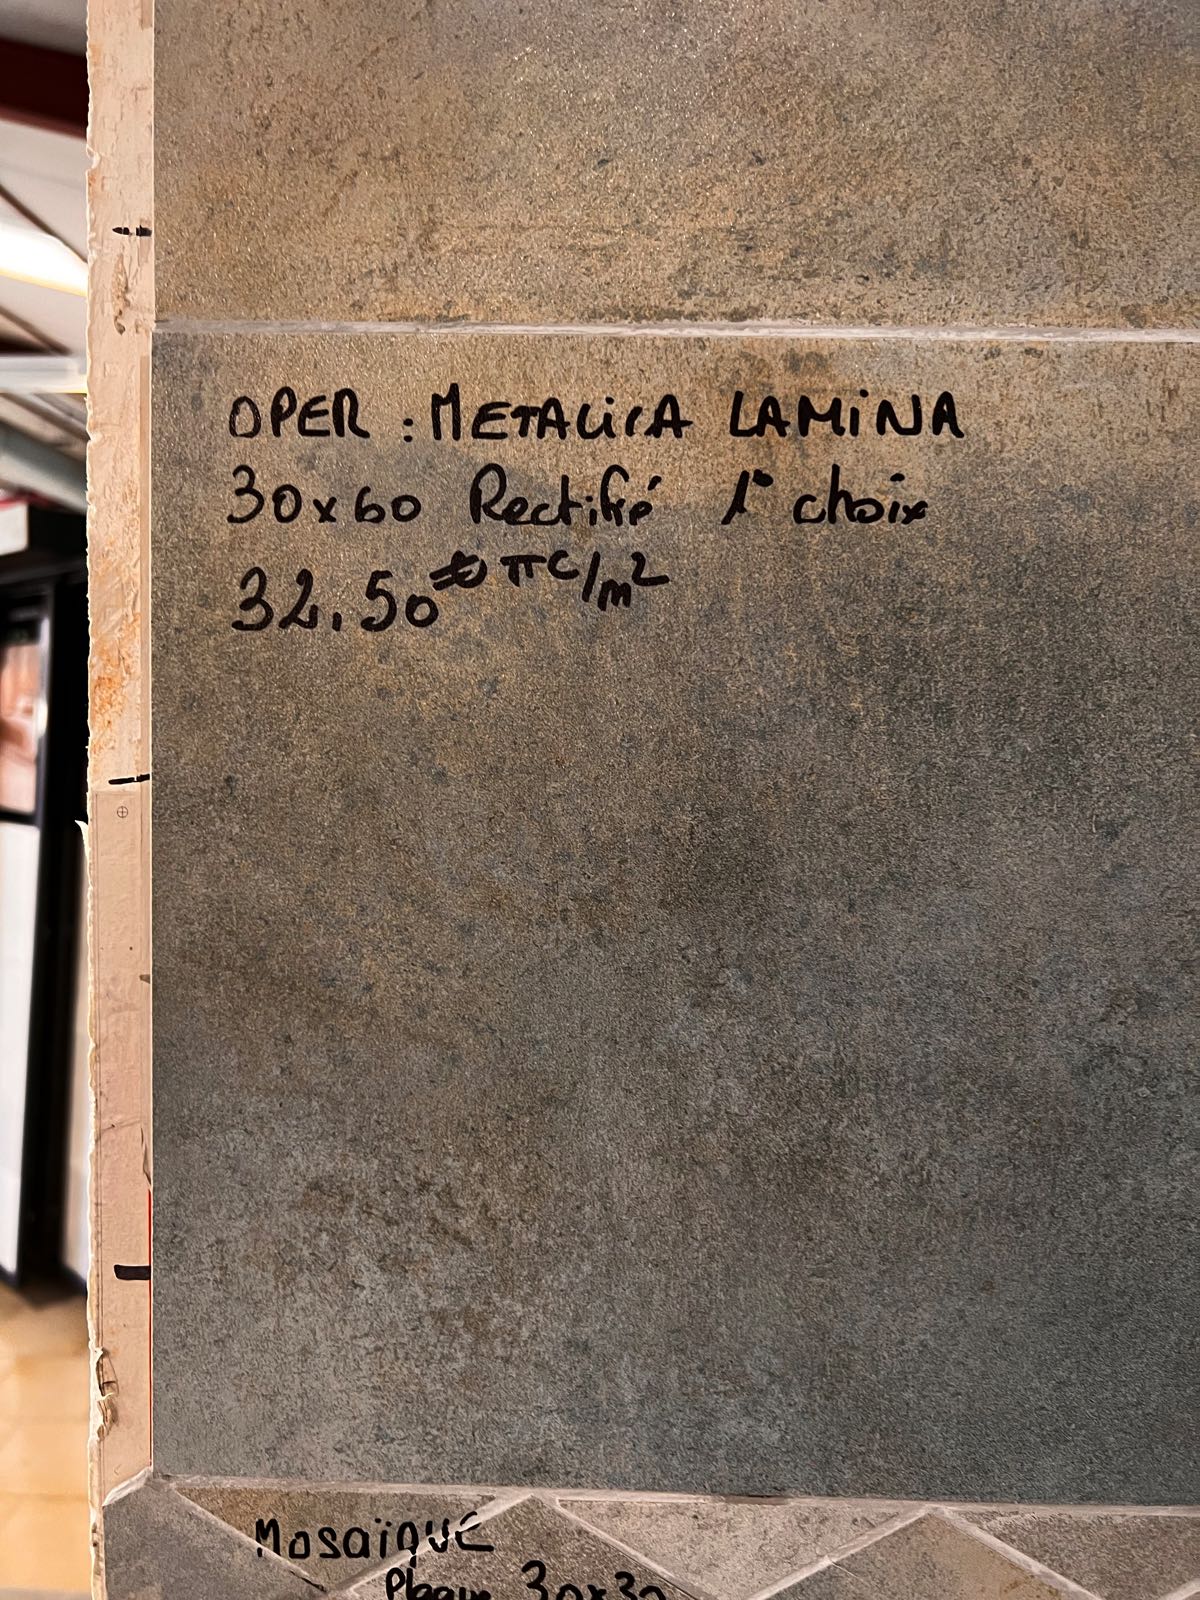 OPER : METALICA LAMINA
30x60 Rectifié 1° choix
32.50 € TTC/m²
Mosaïque
Plaque 30x30